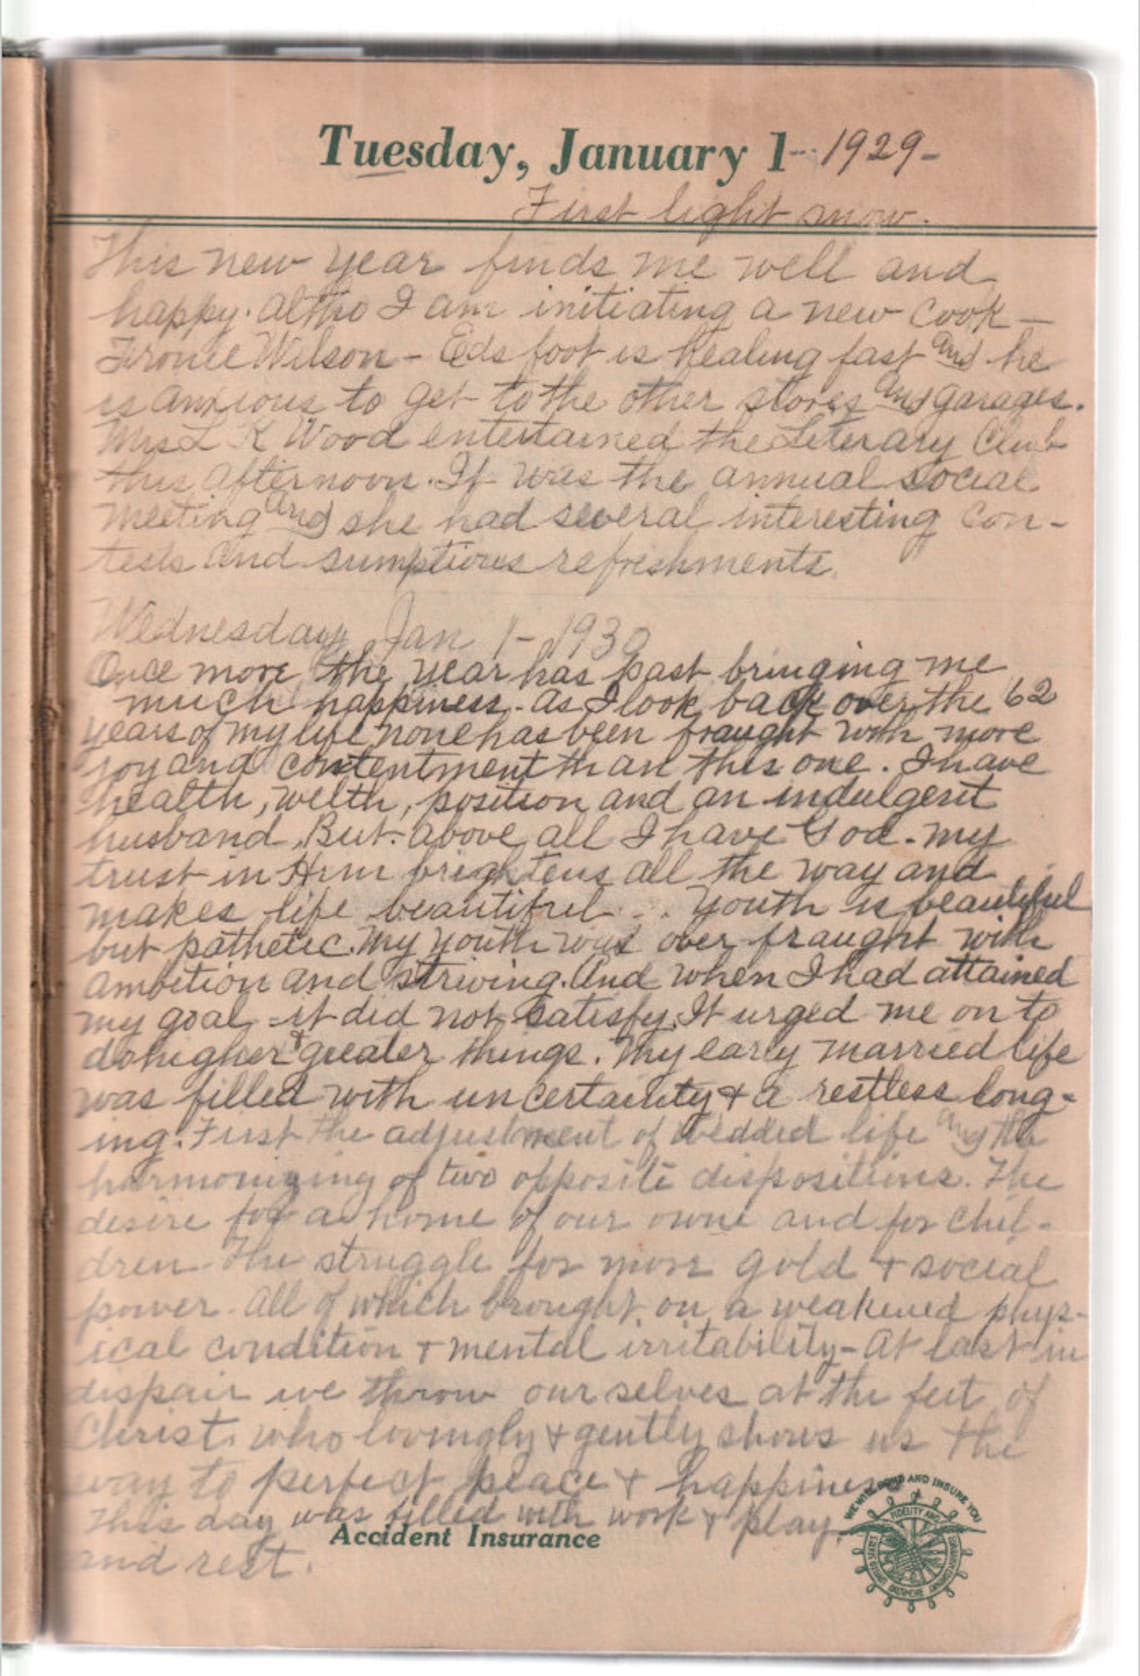 Tuesday, January 1--1929-
First light snow.
This new year finds me well and
happy. Altho I am initiating a new cook —
Wilson - Eds foot is healing fast and he
is anxious to get to the other stores and garages.
Mrs L K Wood entertained the Literary Club
this afternoon. It was the annual social
meeting and she had several interesting con-
tests and sumptious refreshments.
Wednesday Jan 1-1930
Once more the year has past bringing me
much happiness. As I look back over the 62
years of my life none has been fraught with more
joy and contentment than this one. I have
health, welth, position and an indulgent
husband. But above all I have God. My
trust in Him brightens all the way and
makes life beautiful... Youth is beautiful
but pathetic. My youth was over fraught with
ambition and striving. And when I had attained
my goal - it did not satisfy. It urged me on to
do higher & greater things. My early married life
was filled with uncertainity & a restless long-
ing. First the adjustment of wedded life and the
harmonizing of two opposite dispositions. The
desire for a home of our owne and for chil-
dren. The struggle for more gold & social
power. All of which brought on a weakened phys-
ical condition & mental irritability - At last in
dispair we throw our selves at the feet of
Christ who lovingly & gently shows us the
way to perfect peace & happiness
This day was filled with work & play
Accident Insurance
and rest.
AND INSURE YOU
FIDELITY AND